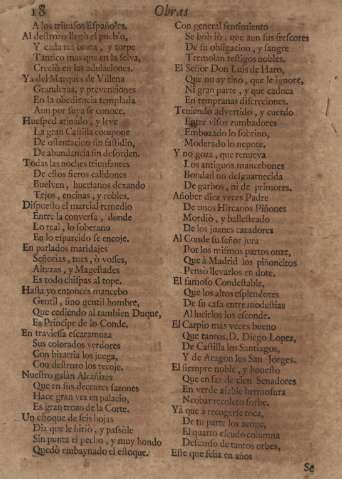 18 Obras
A los triunfos Españoles.
Al destrozo llegò el pueblo,
Y cada tez tosca, y torpe
Tantico mas que en la selva,
Creciò en las adulaciones.
Ya del Marquès de Villena
Grandezas, y prevenciones
En la obediencia templada
Aun por suya se conoce.
Huesped armado, y leve
La gran Castilla compone
De ostentacion sin fastidio,
De abundancia sin desorden.
Todas las noches triunfantes
De estos fieros calidones
Buelven, huerfanos dexando
Tejos, encinas, y robles.
Dispuesto el marcial remedio
Entre la conversa, donde
Lo real, lo soberano
En lo esparcido se encoje.
En parlados maridajes
Señorias, mes, ò vosses,
Altezas, y Magestades
Es todo chispas al tope.
Hasta yo entonces mancebo
Gentil, sino gentil hombre,
Que cediendo al tambien Duque,
Es Principe de lo Conde.
En traviessa escaramuza
Sus colorados verdores
Con bizarria los juega,
Con destrozo los recoje.
Nuestro galan Alcañizes
Que en sus decentes sazones
Hace gran vez en palacio,
Es gran trozo de la Corte.
Un estoque de seis hojas
Dia que le hiriò, y passòle
Sin punta el pecho, y muy hondo
Quedò embaynado el estoque.
Con general sentimiento
Se bolviò, que aun sus frescores
De su obligacion, y sangre
Tremolan testigos nobles.
El Señor Don Luis de Haro,
Que no ay tino, que le ignore,
Ni gran parte, y que caduca
En tempranas discreciones.
Teniendo advertido, y cuerdo
Entre visos zumbadores
Embozado lo sobrino,
Moderado lo nepote.
Y no goza, que renueva
Los antiguos mancebones
Bondad no desguarnecida
De garbos, ni de primores.
Añober diez veces Padre
De unos Hircanos Piñones
Mordiò, y ballesteado
De los juanes cazadores
Al Conde su señor jura
Por los mismos partos onze,
Que à Madrid los piñoncitos
Pensò llevarlos en dote.
El famoso Condestable,
Que los altos esplendores
De su casa entre modestias
Al lucirlos los esconde.
El Carpio mas veces bueno
Que tantos D. Diego Lopez,
De Castilla los Santiagos,
Y de Aragon los San-Jorges.
El siempre noble, y honesto
Que en faz de cien Senadores
En verde afable hermosura
Yà que à recogerse toca,
De tu parte los acoge,
El quarto escudo columna
Descanso de tantos orbes,
Este que feria en años
Se